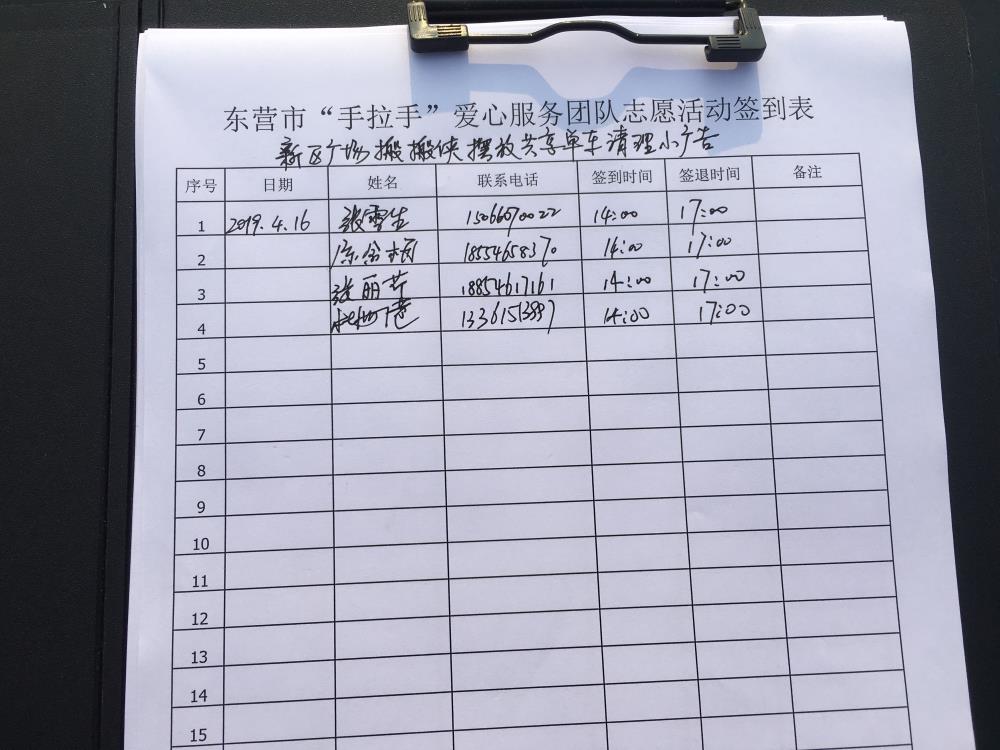 东营市“手拉手”爱心服务团队志愿活动签到表
新区广场搬搬侠摆放共享单车清理小广告
序号 日期 姓名 联系电话 签到时间 签退时间 备注
1 2019.4.16 张雪生 15066070022 14:00 17:00
2 18554658370 14:00 17:00
3 张丽芹 18854617161 14:00 17:00
4 14:00 17:00
5
6
7
8
9
10
11
12
13
14
15